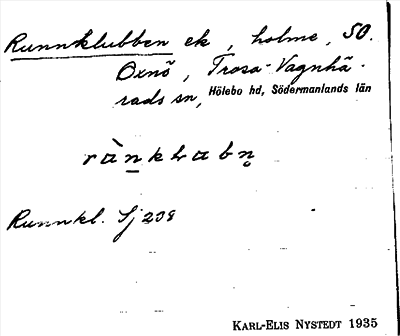 Runnklubben ek, holme, SO.
Oxnö, Trosa-Vagnhä-
rads sn, Hölebo hd, Södermanlands län
Runnkl. Sj 208
KARL-ELIS NYSTEDT 1935